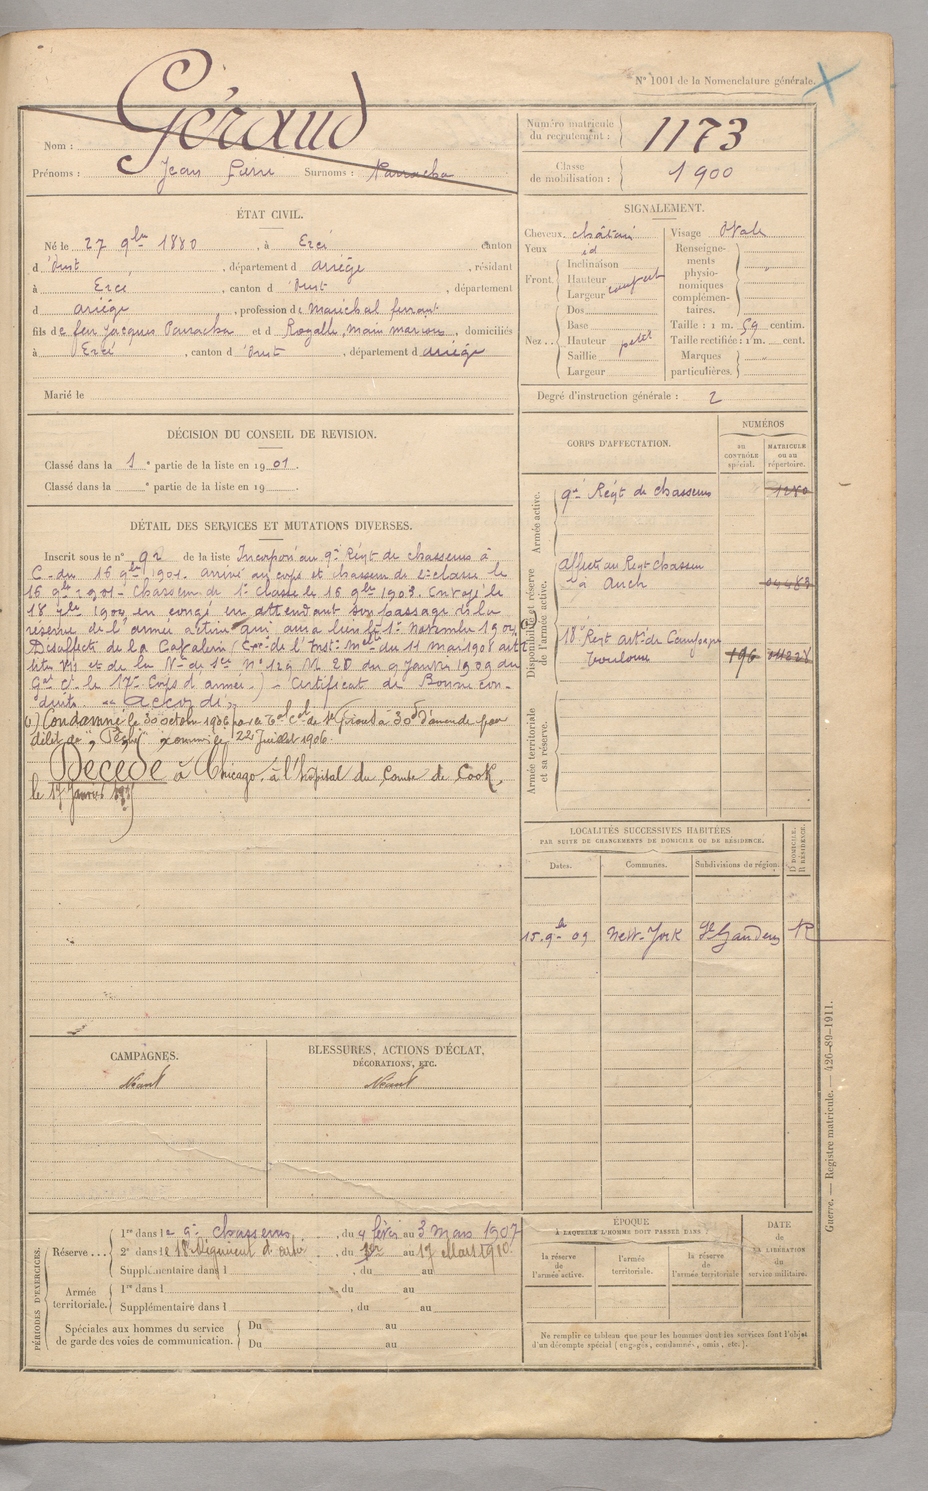 N° 1001 de la Nomenclature générale.
Nom : Géraud
Prénoms : Jean Pierre Surnoms : Parracha
Numéro matricule du recrutement : 1173
Classe de mobilisation : 1900
ÉTAT CIVIL.
Né le 27 9bre 1880, à Ercé canton
d'Oust, département d ariège, résidant
à Ercé, canton d'Oust, département
d ariège, profession de maréchal ferrant
fils de feu Jacques Parracha et d Rogalle, domiciliés
à Ercé, canton d'Oust, département d ariège
Marié le
SIGNALEMENT.
Cheveux châtain
Yeux id
Front Inclinaison
Hauteur
Largeur
Nez Dos
Base
Hauteur petit
Saillie
Largeur
Visage Ovale
Renseignements physionomiques complémentaires. "
Taille : 1 m. 59 centim.
Taille rectifiée : 1 m. cent.
Marques particulières. "
Degré d'instruction générale : 2
DÉCISION DU CONSEIL DE REVISION.
Classé dans la 1e partie de la liste en 1901.
Classé dans la e partie de la liste en 19 .
DÉTAIL DES SERVICES ET MUTATIONS DIVERSES.
Inscrit sous le n° 92 de la liste Incorporé au 9e Régt de chasseurs à
C. du 16 9bre 1901. arrivé au corps et chasseur de 2e classe le
16 9bre 1901. Chasseur de 1e classe le 16 9bre 1903. Envoyé le
18 7bre 1904 en congé en attendant son passage dans la
réserve de l'armée active qui aura lieu le 1er Novembre 1904
Désaffecté de la Cavalerie ( de l'Inst. Melle du 11 mai 1908 art
et de la N° 129 M 2D du 9 Janvier 1909 du
Gal Ct le 17e Corps d'armée.) - Certificat de Bonne con-
duite. " accordé "
Condamné le 30 octobre 1906 par le Tal Cel de St Girons à 30f d'amende pour
délit de " Pêche " commis le 22 Juillet 1906.
Décédé à Chicago, à l'hôpital du Comté de Cook,
le 17 Janvier
CORPS D'AFFECTATION.
NUMÉROS
au CONTRÔLE spécial.
MATRICULE ou au répertoire.
Armée active.
9e Régt de chasseurs
Disponibilité et réserve de l'armée active.
affecté au Régt Chasseurs
à Auch
18e Régt arte de Campagne
Toulouse 196
Armée territoriale et sa réserve.
LOCALITÉS SUCCESSIVES HABITÉES
PAR SUITE DE CHANGEMENTS DE DOMICILE OU DE RÉSIDENCE.
Dates. Communes. Subdivisions de région. D DOMICILE. R RÉSIDENCE.
15.9bre 09 New-York St Gaudens R
CAMPAGNES.
Néant
BLESSURES, ACTIONS D'ÉCLAT,
DÉCORATIONS, ETC.
Néant
PÉRIODES D'EXERCICES.
Réserve... 1re dans le 9e chasseurs, du 4 févr au 3 mars 1907
2e dans le 18e Régiment d'artie, du 1er au 17 Mars 1910.
Supplémentaire dans l , du au
Armée territoriale. 1re dans l , du au
Supplémentaire dans l , du au
Spéciales aux hommes du service
de garde des voies de communication. Du au
Du au
ÉPOQUE
À LAQUELLE L'HOMME DOIT PASSER DANS :
la réserve de l'armée active.
l'armée territoriale.
la réserve de l'armée territoriale
DATE de LA LIBÉRATION du service militaire.
Ne remplir ce tableau que pour les hommes dont les services font l'objet
d'un décompte spécial (engagés, condamnés, omis, etc.).
Guerre. — Registre matricule. — 426-89-1911.